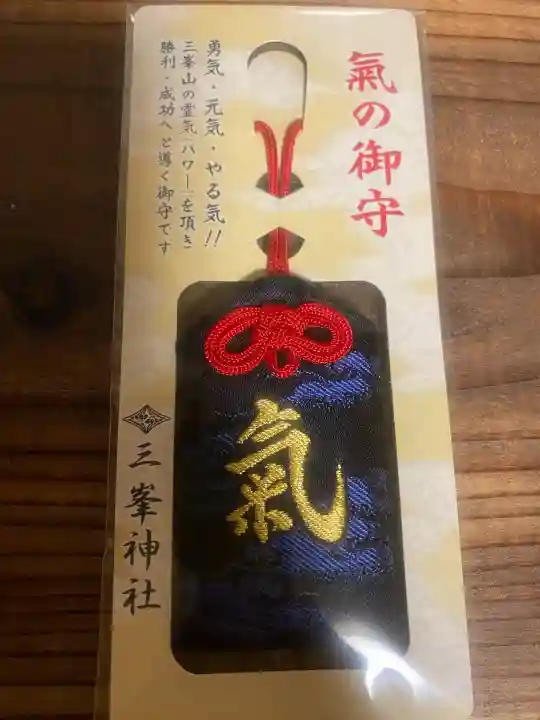 氣の御守
勇気・元気・やる気!!
三峯山の霊気「パワー」を頂き
勝利・成功へと導く御守です
氣
三峯神社